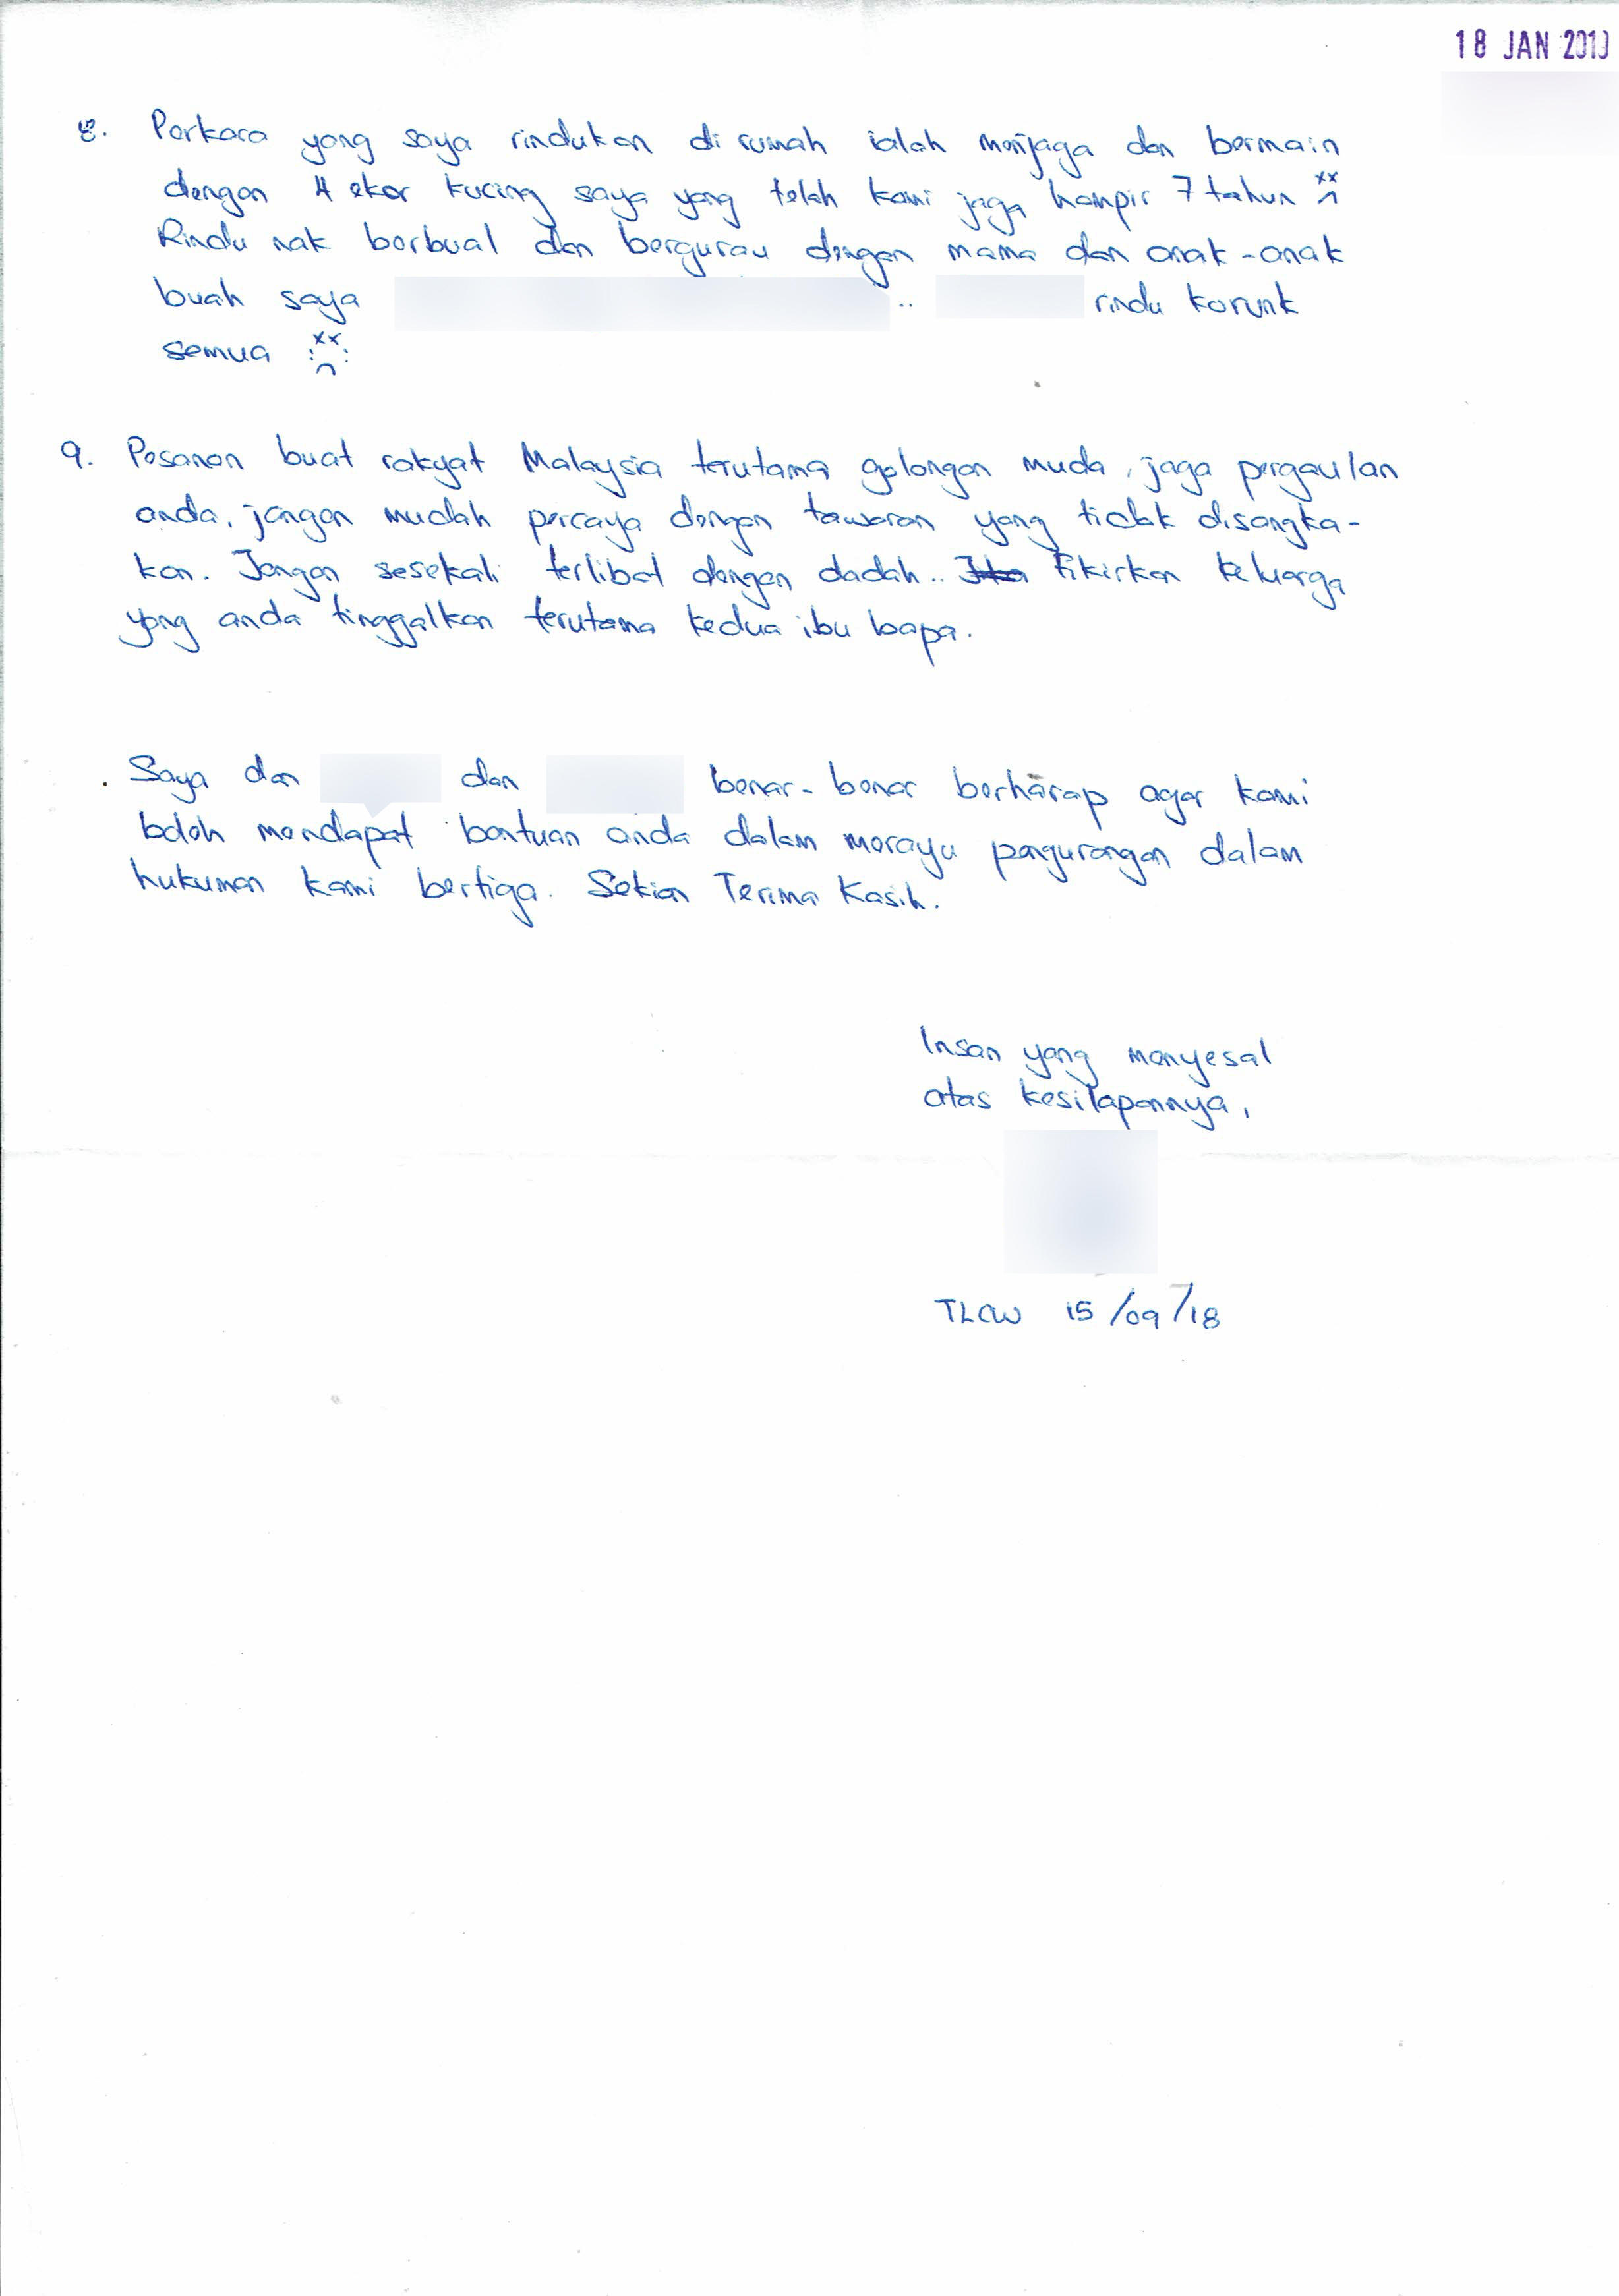 18 JAN 2019
8. Perkara yang saya rindukan di rumah ialah menjaga dan bermain
dengan 4 ekor kucing saya yang telah kami jaga hampir 7 tahun
Rindu nak berbual dan bergurau dengan mama dan anak-anak
buah saya .. rindu korunk
semua
9. Pesanan buat rakyat Malaysia terutama golongan muda, jaga pergaulan
anda, jangan mudah percaya dengan tawaran yang tidak disangka-
kan. Jangan sesekali terlibat dengan dadah.. Fikirkan keluarga
yang anda tinggalkan terutama kedua ibu bapa.
Saya dan dan benar-benar berharap agar kami
boleh mendapat bantuan anda dalam merayu pengurangan dalam
hukuman kami bertiga. Sekian Terima Kasih.
Insan yang menyesal
atas kesilapannya,
TLCW 15/09/18